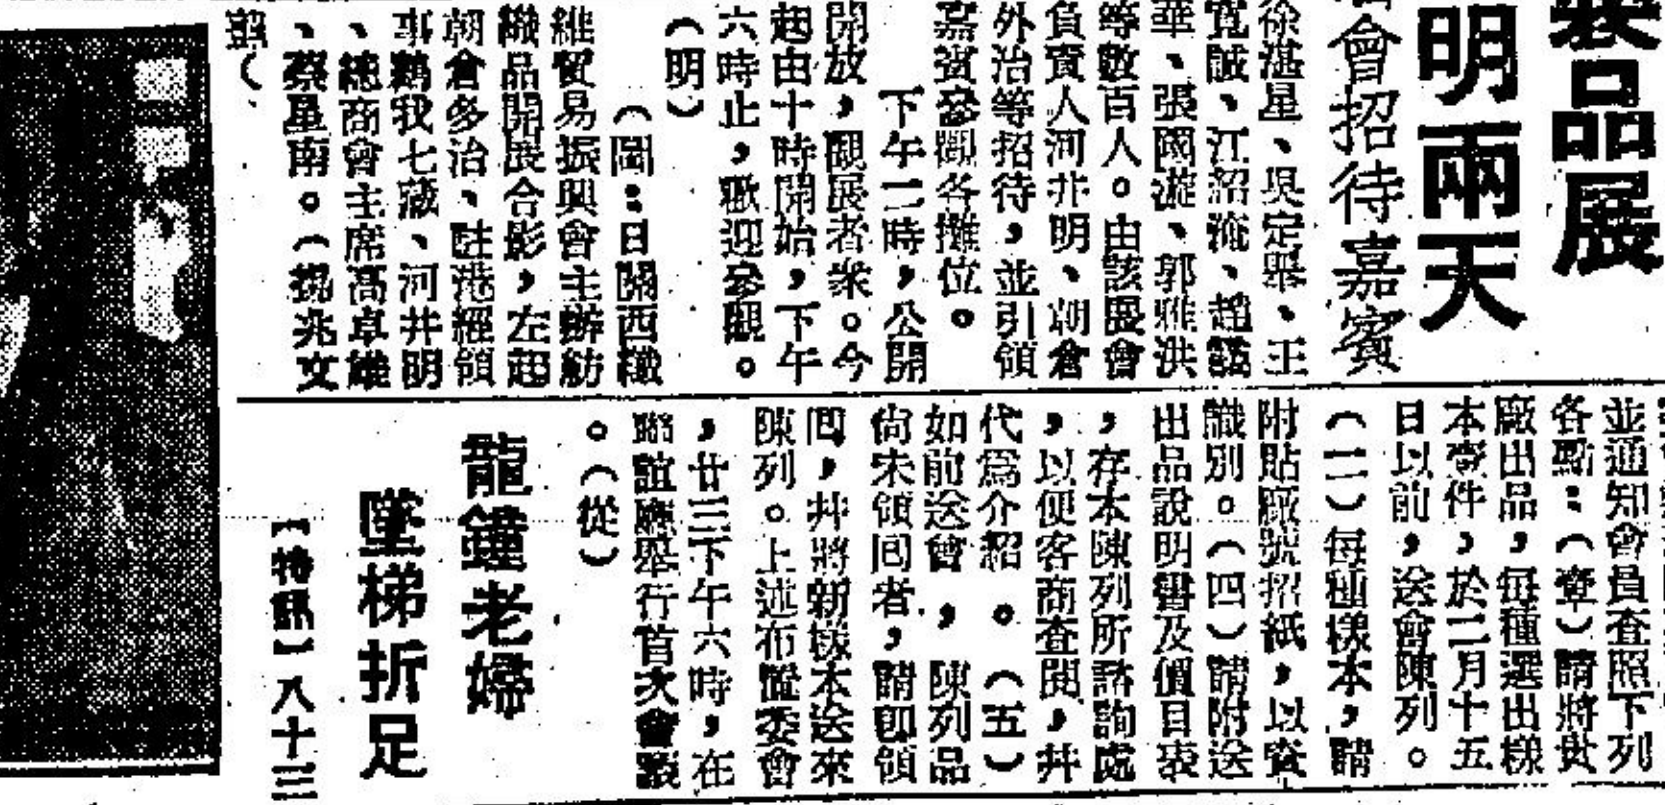 裝品展
明兩天
會招待嘉賓
徐湛星、吳定舉、王
寬誠、江紹淹、趙
華、張國漩、郭雅洪
等數百人。由該展會
負責人河井明、朝倉
外治等招待,並引領
嘉賓參觀各攤位。
下午二時,公開
開放,觀展者衆。今
起由十時開始,下午
六時止,歡迎參觀。
(明)
(圖:日關西纖
維貿易振興會主辦紡
織品開展合影,左起
朝倉多治、駐港經領
事鵜我七藏、河井明
、總商會主席高卓雄
、蔡星南。(楊兆文
並通知會員查照下列
各點:(壹)請將貴
廠出品,每種選出樣
本壹件,於二月十五
日以前,送會陳列。
(二)每種樣本,請
附貼廠號招紙,以資
識別。(四)請附送
出品說明書及價目表
,存本陳列所諮詢處
,以便客商查閱,幷
代爲介紹。(五)
如前送會,陳列品
尙未領囘者,請卽領
囘,幷將新樣本送來
陳列。上述布監委會
,廿三下午六時,在
聯誼廳舉行首次會議
。(從)
龍鐘老婦
墜梯折足
【特訊】八十三